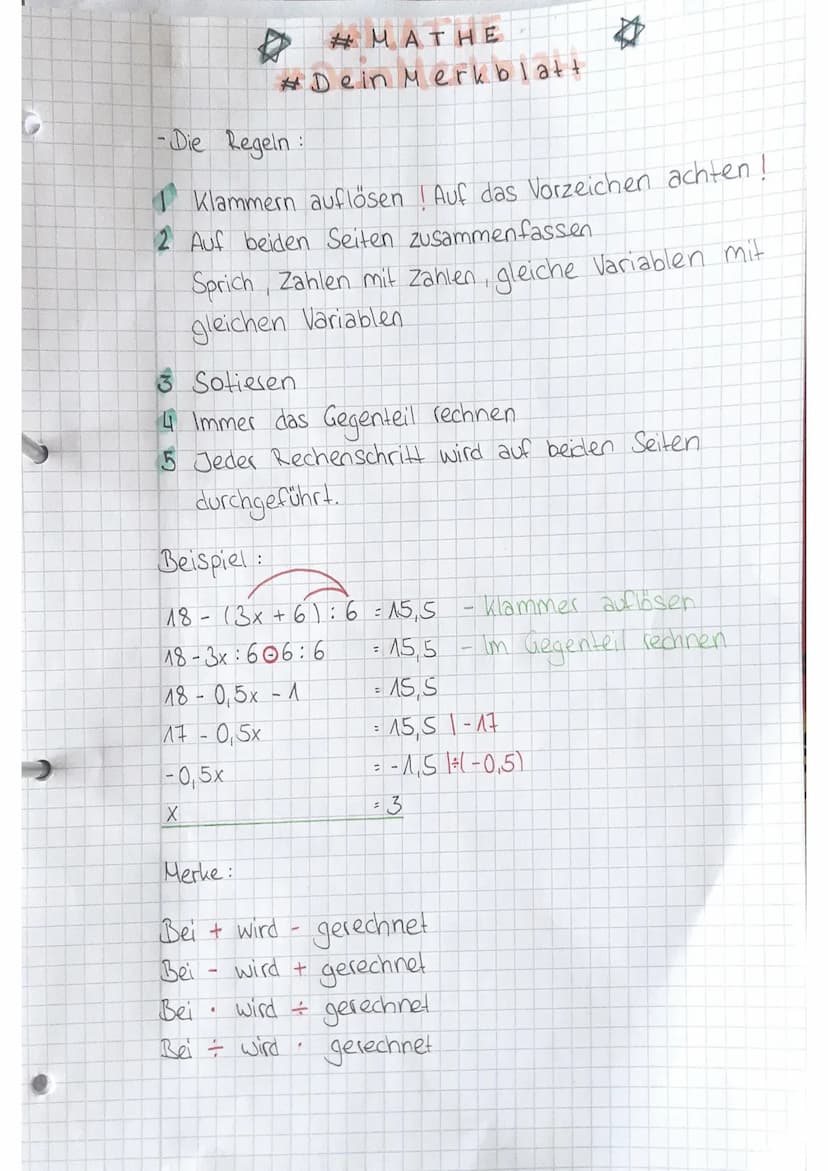 # MATHE
# Dein Merkblatt
- Die Regeln :
1 Klammern auflösen ! Auf das Vorzeichen achten !
2 Auf beiden Seiten zusammenfassen
Sprich , Zahlen mit Zahlen , gleiche Variablen mit
gleichen Variablen
3 Sotieren
4 Immer das Gegenteil rechnen
5 Jeder Rechenschritt wird auf beiden Seiten
durchgeführt.
Beispiel :
18 - (3x + 6) : 6 = 15,5 - Klammer auflösen
18 - 3x : 6 - 6 : 6 = 15,5 - Im Gegenteil rechnen
18 - 0,5x - 1 = 15,5
17 - 0,5x = 15,5 | - 17
-0,5x = -1,5 | ÷ (-0,5)
x = 3
Merke :
Bei + wird - gerechnet
Bei - wird + gerechnet
Bei · wird ÷ gerechnet
Bei ÷ wird · gerechnet